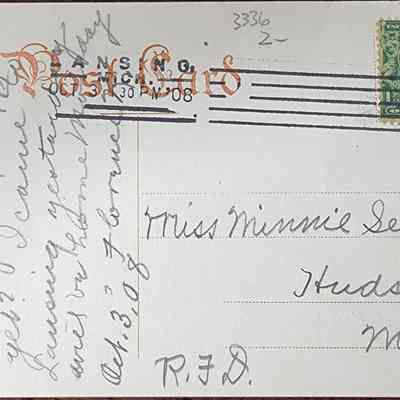 3336
2-
Post Card
LANSING,
MICH.
OCT 3 30 PM '08
yet? I came
Lansing yesterday
will be home Monday
Oct. 3, 08 Florence
Miss Minnie Se
Huds
M
R.F.D.